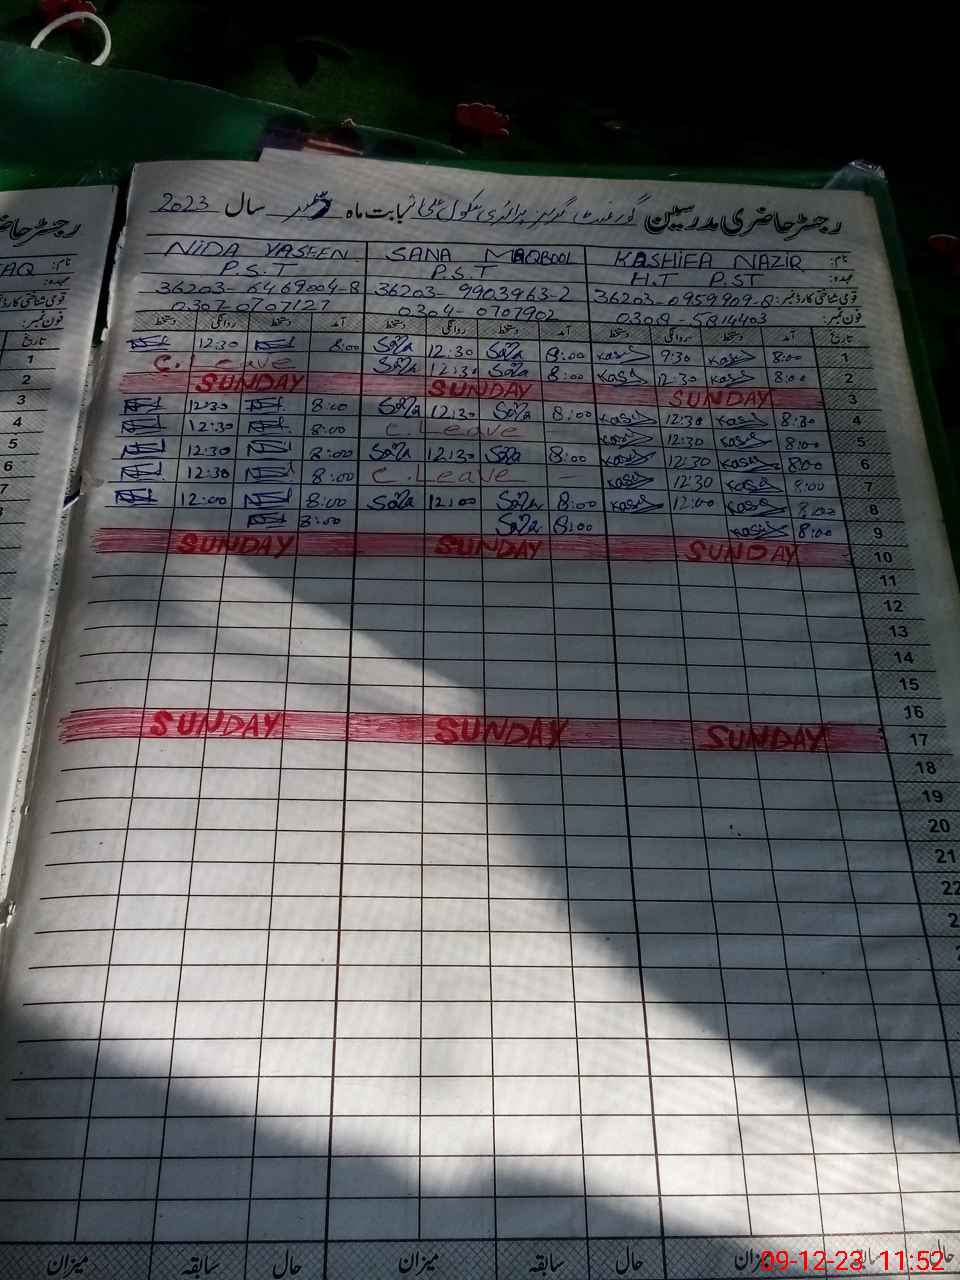 رجسٹر حاضری مدرسین گورنمنٹ گرلز پرائمری سکول بابت ماہ دسمبر سال 2023
نام: KASHIFA NAZIR SANA MAQBOOL NIDA YASEEN
عہدہ: H.T PST P.S.T P.S.T
قومی شناختی کارڈ نمبر: 36203-0959909-8 36203-9903963-2 36203-6469004-8
فون نمبر: 0308-5814403 0304-0707902 0307-0707127
تاریخ آمد دستخط روانگی دستخط آمد دستخط روانگی دستخط آمد دستخط روانگی دستخط
1 8:00 Kash 9:30 Kash 8:00 Sana 12:30 Sana 8:00 12:30
2 8:00 Kash 12:30 Kash 8:00 Sana 12:30 Sana C. Leave
3 SUNDAY SUNDAY SUNDAY
4 8:30 Kash 12:30 Kash 8:00 Sana 12:30 Sana 8:00 12:30
5 8:00 Kash 12:30 Kash C. Leave 8:00 12:30
6 8:00 Kash 12:30 Kash 8:00 Sana 12:30 Sana 8:00 12:30
7 8:00 Kash 12:30 Kash C. Leave 8:00 12:30
8 8:00 Kash 12:00 Kash 8:00 Sana 12:00 Sana 8:00 12:00
9 8:00 Kash 8:00 Sana 8:00
10 SUNDAY SUNDAY SUNDAY
11
12
13
14
15
16
17 SUNDAY SUNDAY SUNDAY
18
19
20
21
22
حال سابقہ میزان حال سابقہ میزان حال سابقہ میزان
09-12-23 11:52